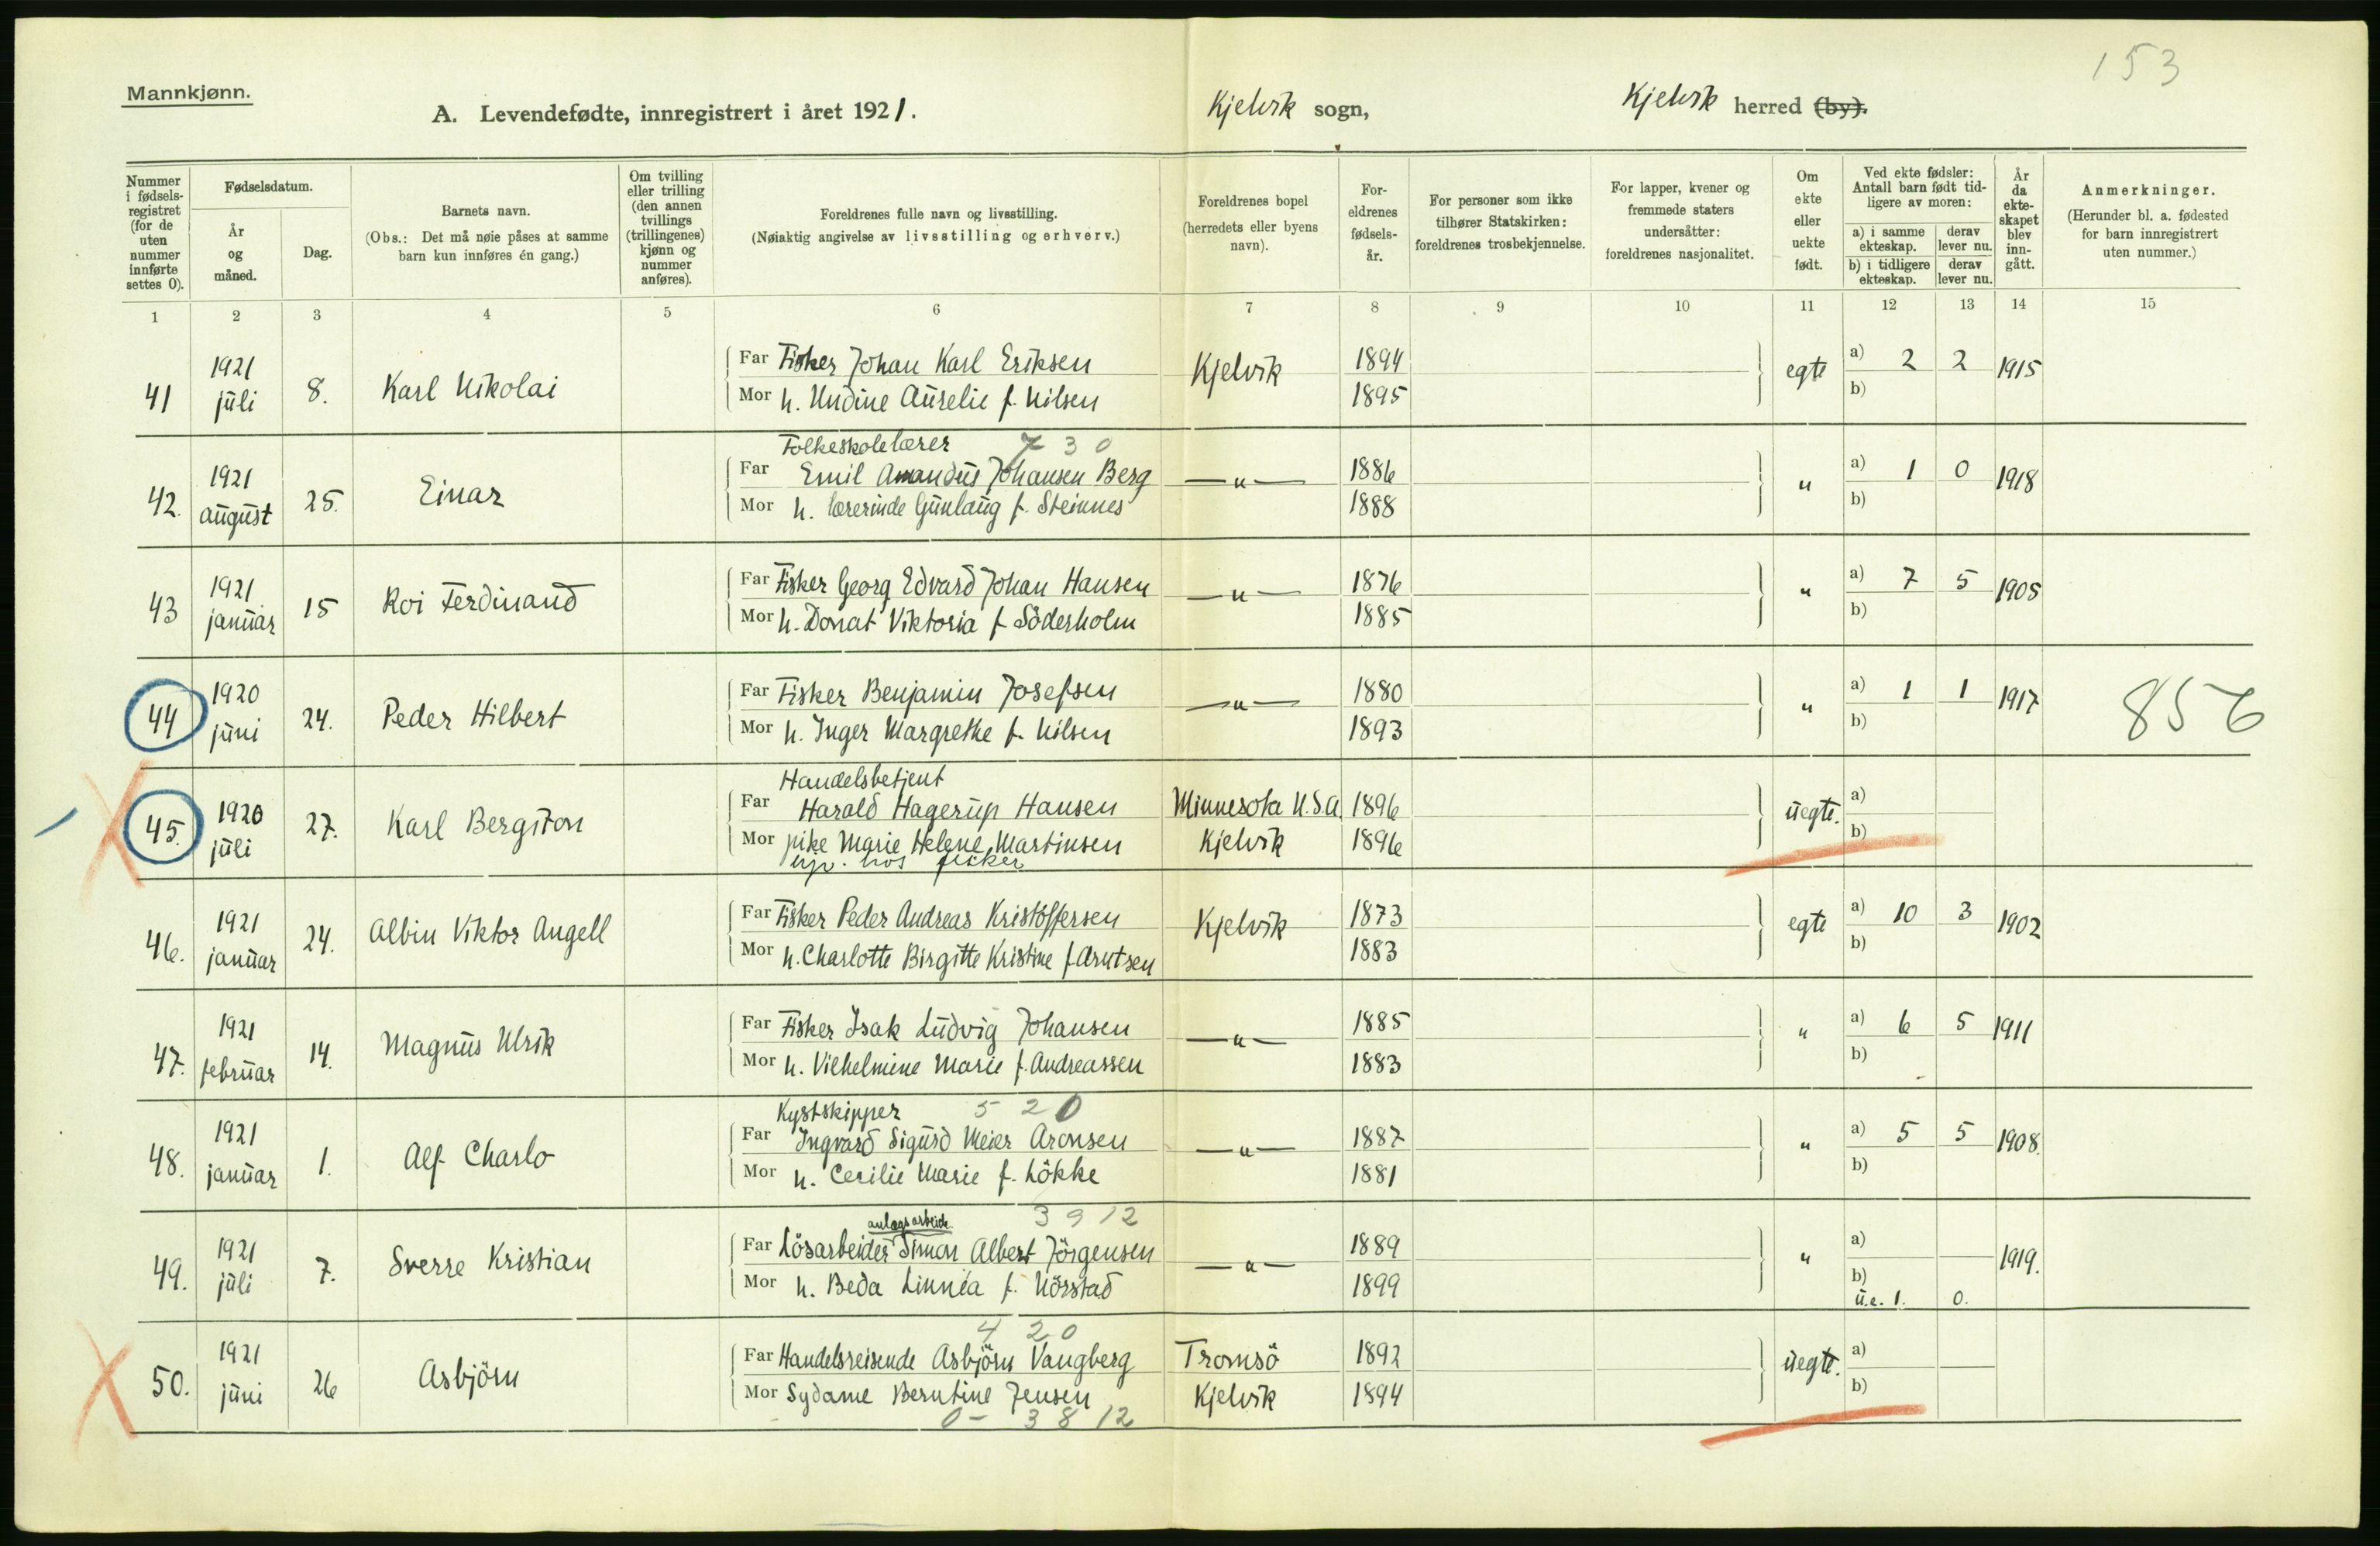 153
Mannkjønn.
A. Levendefødte, innregistrert i året 1921. Kjelvik sogn, Kjelvik herred (by).
Nummer i fødselsregistret (for de uten nummer innførte settes 0).
Fødselsdatum.
År og måned.
Dag.
Barnets navn.
(Obs.: Det må nøie påses at samme barn kun innføres én gang.)
Om tvilling eller trilling (den annen tvillings (trillingenes) kjønn og nummer anføres).
Foreldrenes fulle navn og livsstilling.
(Nøiaktig angivelse av livsstilling og erhverv.)
Foreldrenes bopel (herredets eller byens navn).
Foreldrenes fødselsår.
For personer som ikke tilhører Statskirken: foreldrenes trosbekjennelse.
For lapper, kvener og fremmede staters undersåtter: foreldrenes nasjonalitet.
Om ekte eller uekte født.
Ved ekte fødsler: Antall barn født tidligere av moren:
a) i samme ekteskap. derav lever nu.
b) i tidligere ekteskap. derav lever nu.
År da ekteskapet blev inngått.
Anmerkninger.
(Herunder bl. a. fødested for barn innregistrert uten nummer.)
1 2 3 4 5 6 7 8 9 10 11 12 13 14 15
41 1921 juli 8. Karl Nikolai Far Fisker Johan Karl Eriksen Kjelvik 1894 egte a) 2 2 1915
Mor h. Undine Aurelie f. Nilsen 1895 b)
Folkeskolelærer 730
42. 1921 august 25. Einar Far Emil Amandus Johansen Berg —"— 1886 " a) 1 0 1918
Mor h. lærerinde Gunlaug f. Steinnes 1888 b)
43 1921 januar 15 Roi Ferdinand Far Fisker Georg Edvard Johan Hansen —"— 1876 " a) 7 5 1905
Mor h. Donat Viktoria f Söderholm 1885 b)
44 1920 juni 24. Peder Hilbert Far Fisker Benjamin Josefsen —"— 1880 " a) 1 1 1917 856
Mor h. Inger Margrethe f. Nilsen 1893 b)
Handelsbetjent
45. 1920 juli 27. Karl Bergston Far Harald Hagerup Hansen Minnesota U.S.A. 1896 uegte. a)
Mor pike Marie Helene Martinsen Kjelvik 1896 b)
hos fisker
46. 1921 januar 24. Albin Viktor Angell Far Fisker Peder Andreas Kristoffersen Kjelvik 1873 egte a) 10 3 1902
Mor h. Charlotte Birgitte Kristine f Arntsen 1883 b)
47. 1921 februar 14. Magnus Ulrik Far Fisker Isak Ludvig Johansen —"— 1885 " a) 6 5 1911
Mor h. Vilhelmine Marie f. Andreassen 1883 b)
Kystskipper 520
48. 1921 januar 1. Alf Charlo Far Ingvard Sigurd Meier Aronsen —"— 1887 " a) 5 5 1908.
Mor h. Cecilie Marie f. Lökke 1881 b)
anlægsarbeide. 3912
49. 1921 juli 7. Sverre Kristian Far Lösarbeider Simon Albert Jörgensen —"— 1889 " a) 1919.
Mor h. Beda Linnéa f. Nörstad 1899 b)
u.e. 1. 0.
420
50. 1921 juni 26 Asbjörn Far Handelsreisende Asbjörn Vangberg Tromsö 1892 uegte. a)
Mor Sydame Berntine Jensen Kjelvik 1894 b)
0- 3812